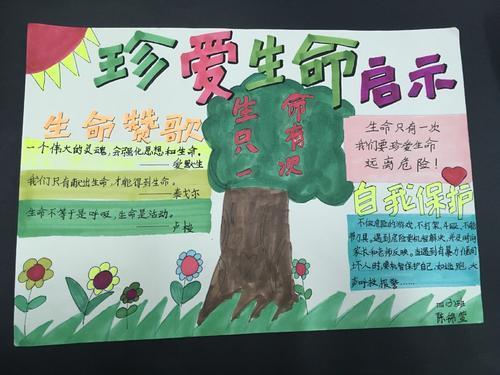 珍爱生命启示
生命赞歌
一个伟大的灵魂,会强化思想和生命。
——爱默生
我们只有献出生命,才能得到生命。
——泰戈尔
生命不等于是呼吸,生命是活动。
——卢梭
生命只有一次
生命只有一次
我们要珍爱生命
远离危险!
自我保护
不做危险的游戏,不打架、斗殴,不能
带刀具,遇到危险要机智解决,并及时向
家长和老师反映。当遇到有暴力
坏人时,要机智保护自己,如逃跑、大
声呼救、报警……
班
陈